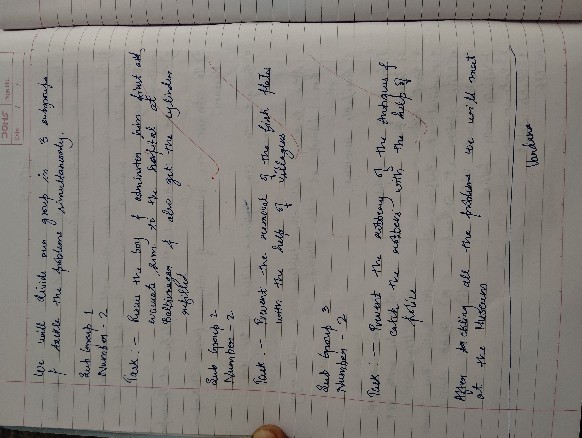 We will divide our group in 3 subgroups
& tackle the problems simultaneously.
Sub Group 1
Number - 2
Task :- Rescue the boy & administer him first aid,
evacuate him to the hospital at
& also get the cylinder
refilled
Sub Group 2
Number - 2
Task :- Prevent the removal of the fish plates
with the help of villagers
Sub Group 3
Number - 2
Task :- Prevent the robbery of the Antiques &
catch the robbers with the help of
police
After tackling all the problems we would meet
at the Museum
Vandana